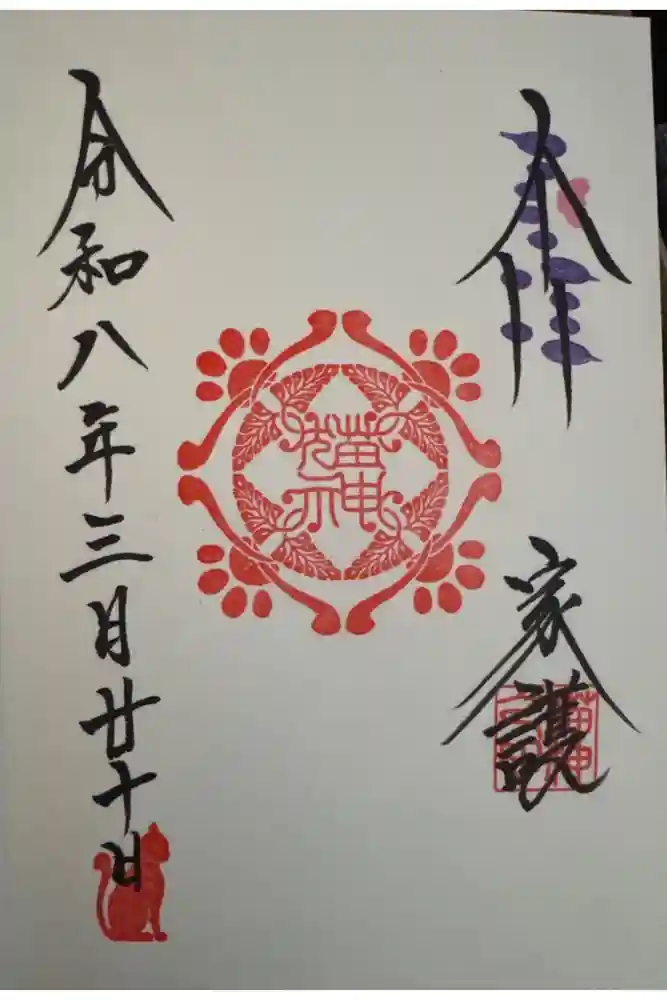 家護
猫神
令和八年三月廿十日